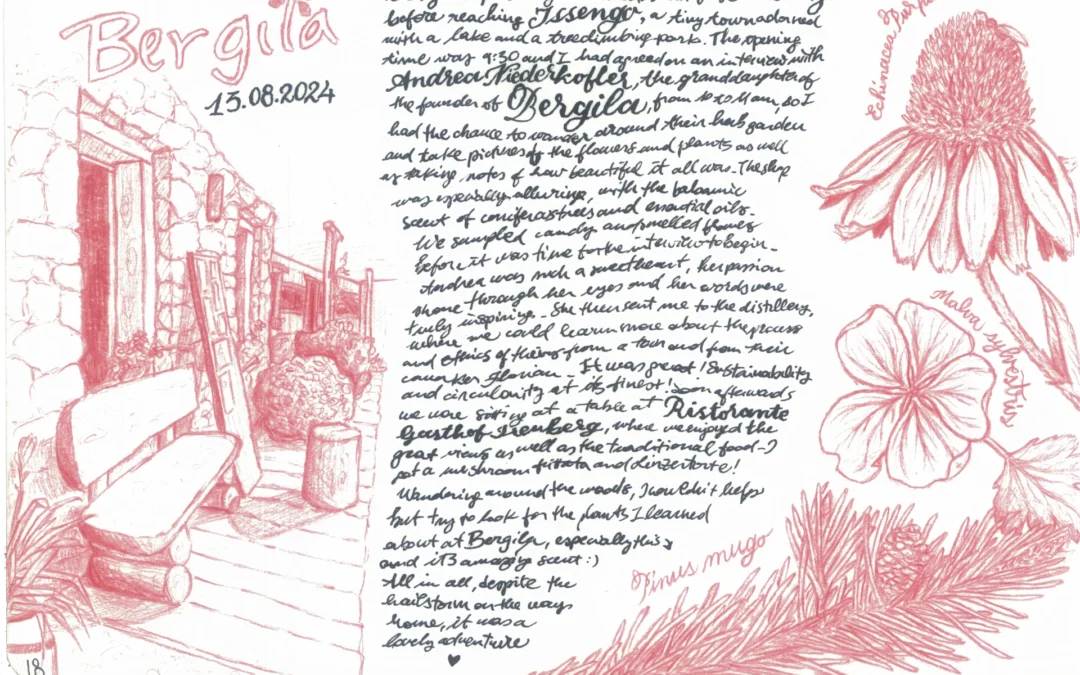 Bergila
13.08.2024
before reaching Issengo, a tiny town adorned
with a lake and a treeclimbing park. The opening
time was 9:30 and I had agreed on an interview with
Andrea Niederkofler, the granddaughter of
the founder of Bergila, from 10 to 11 am, so I
had the chance to wander around their herb garden
and take pictures of the flowers and plants as well
as taking notes of how beautiful it all was. The shop
was especially alluring, with the balsamic
scent of coniferastrees and essential oils.
We sampled candy and smelled flowers
before it was time for the interview to begin.
Andrea was such a sweetheart, her passion
shone through her eyes and her words were
truly inspiring. She then sent me to the distillery,
where we could learn more about the process
and ethics of theirs from a tour and from their
coworker Florian. It was great! Sustainability
and circularity at its finest! Soon afterwards
we were sitting at a table at Ristorante
Gasthof Irenberg, where we enjoyed the
great views as well as the traditional food -
got a mushroom frittata and Linzertorte!
Wandering around the woods, I wouldn't help
but try to look for the plants I learned
about at Bergila, especially this
and it's amazing scent :)
All in all, despite the
hailstorm on the way
home, it was a
lovely adventure
♥
Echinacea
Malva sylvestris
Pinus mugo
18